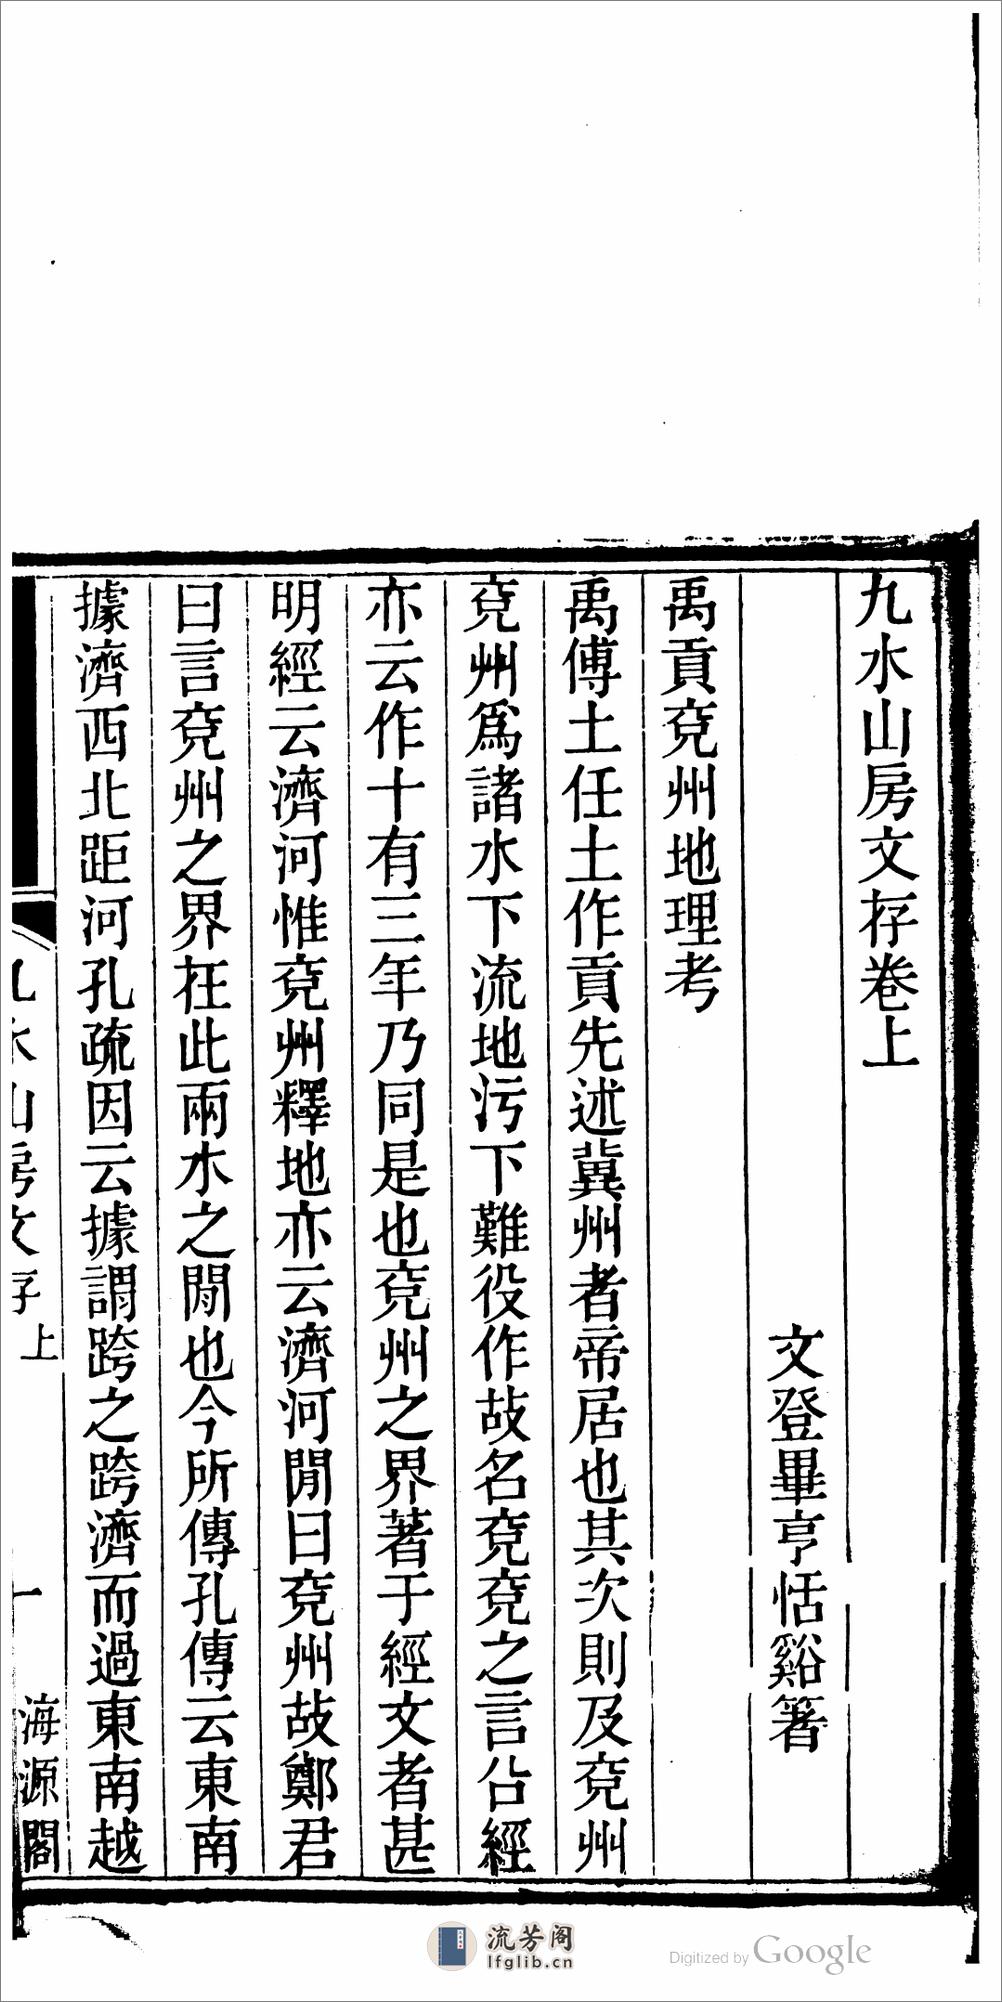 九水山房文存卷上
文登畢亨恬谿箸
禹貢兗州地理考
禹傅土任土作貢先述冀州者帝居也其次則及兗州
兗州爲諸水下流地污下難役作故名兗兗之言㕣經
亦云作十有三年乃同是也兗州之界著于經文者甚
明經云濟河惟兗州釋地亦云濟河閒曰兗州故鄭君
曰言兗州之界在此兩水之閒也今所傳孔傳云東南
據濟西北距河孔疏因云據謂跨之跨濟而過東南越
九水山房文存 上
一
海源閣
流芳阁
lfglib.cn
Digitized by Google